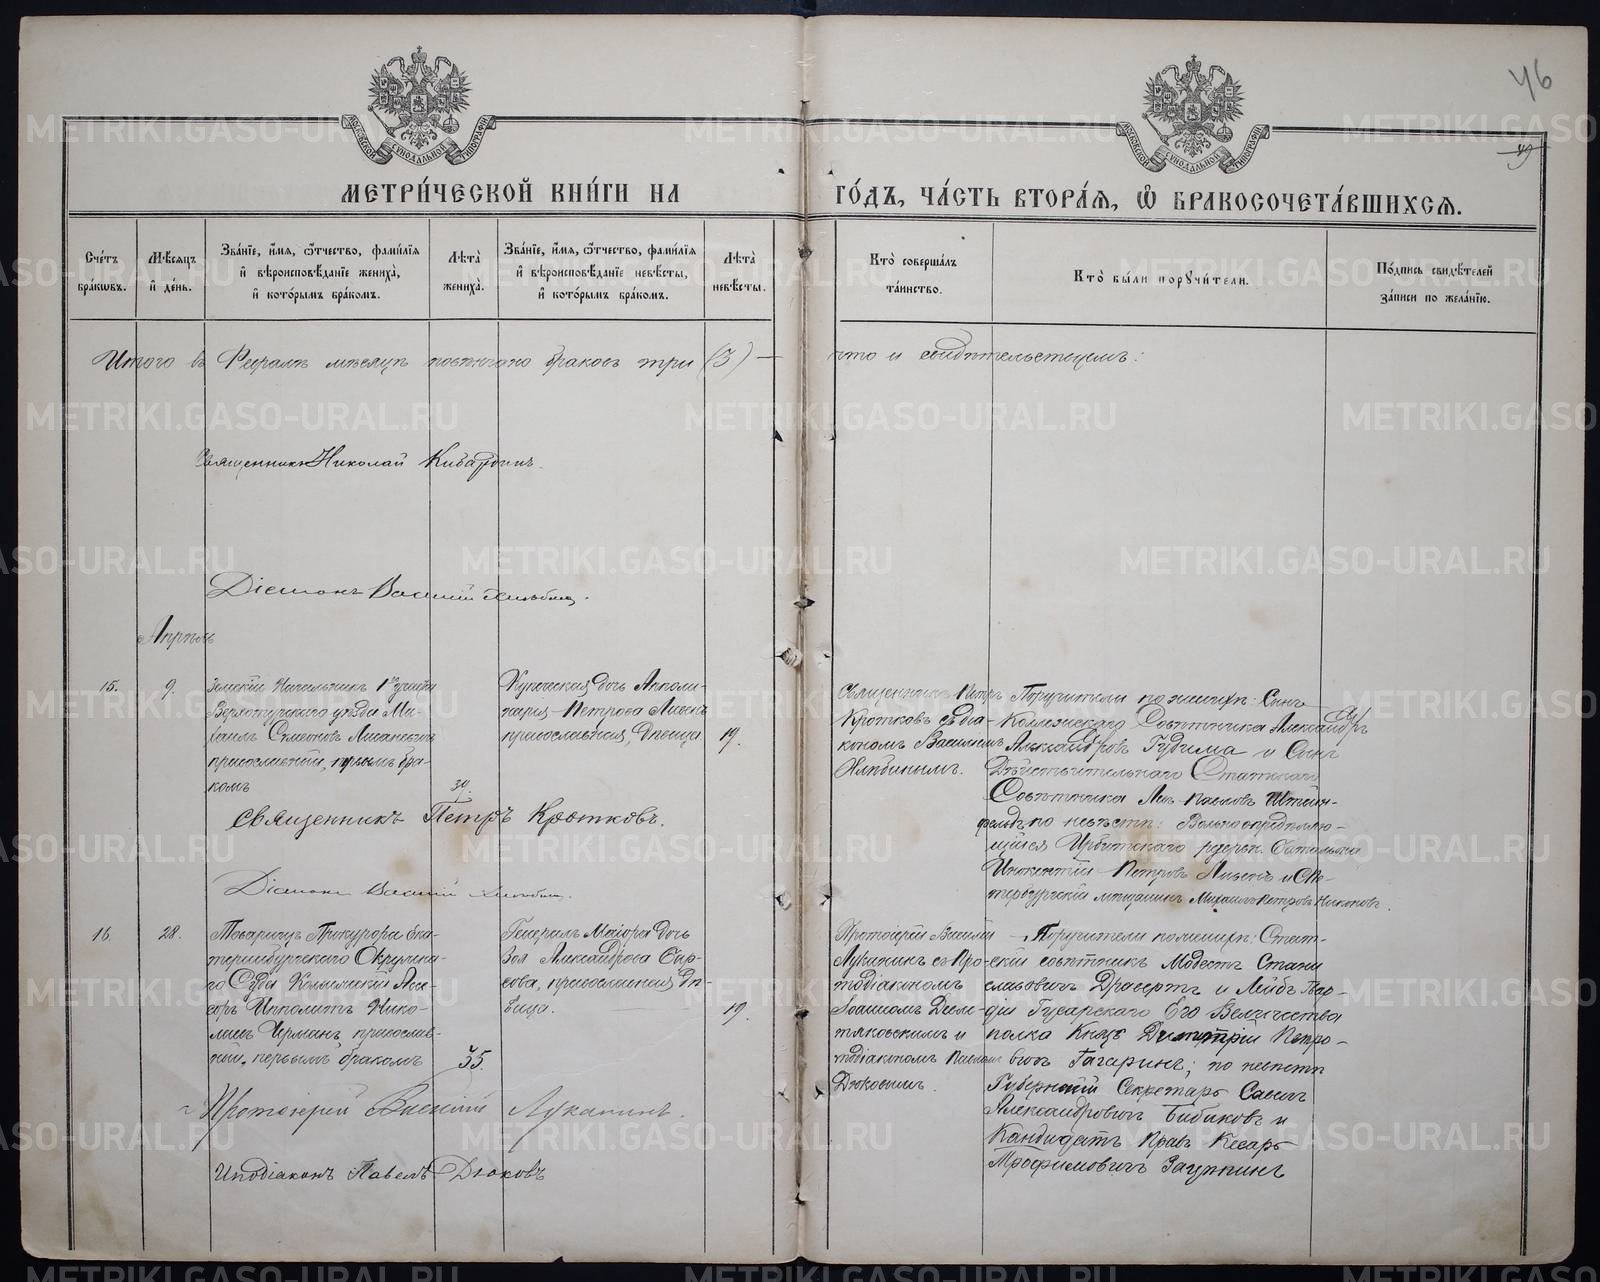 46
49
МОСКОВСКОЙ СѴНОДАЛЬНОЙ ТИПОГРАФІИ
МОСКОВСКОЙ СѴНОДАЛЬНОЙ ТИПОГРАФІИ
МЕТРИ́ЧЕСКОЙ КНИ́ГИ НА ГО́ДЪ, ЧА́СТЬ ВТОРА́Ѧ, Ѡ҆ БРАКОСОЧЕТА́ВШИХСѦ.
Сче́тъ бра́кѡвъ.
Мѣ́сяцъ и҆ де́нь.
Зва́нїе, и҆́мя, ѻ҆́тчество, фами́лїя и҆ вѣроисповѣ́данїе жениха̀, и҆ кото́рымъ бра́комъ.
Лѣ́та жениха̀.
Зва́нїе, и҆́мя, ѻ҆́тчество, фами́лїя и҆ вѣроисповѣ́данїе невѣ́сты, и҆ кото́рымъ бра́комъ.
Лѣ́та невѣ́сты.
Кто̀ соверша́лъ та́инство.
Кто̀ бы́ли порꙋчи́тели.
По́дпись свидѣ́телей за́писи по жела́нїю.
Итого въ Февралѣ мѣсяцѣ повѣнчано браковъ три (3) — что и свидѣтельствуемъ:
Священникъ Николай
Діаконъ Василій
Апрѣль
15.
9.
Земскій Начальникъ 1го участка
Верхотурскаго уѣзда Ми-
хаилъ Симеоновъ
православный, первымъ бра-
комъ
39.
Купеческая дочь Апполи-
нарія Петрова
православная, дѣвица
19.
Священникъ Петръ
Кротковъ съ діа-
кономъ Василіемъ
Поручители по женихѣ: Сынъ
Коллежскаго Совѣтника Александръ
Александровъ Гудима и Сынъ
Дѣйствительнаго Статскаго
Совѣтника Левъ Павловъ Штейн-
фельдъ по невѣстѣ: Вольноопредѣляю-
щійся Ирбитскаго резерв. баталіона
Инокентій Петровъ и С. Пе-
тербургскій мѣщанинъ Михаилъ Петровъ Никоновъ.
Священникъ Петръ Кротковъ.
Діаконъ Василій
16
28.
Товарищъ Прокурора Ека-
теринбургскаго Окружна-
го Суда Коллежскій Асе-
соръ Ипполитъ Нико-
лаевъ православ-
ный, первымъ бракомъ
35.
Генералъ Маіора дочь
Зоя Александрова
православная дѣ-
вица.
19.
Протоіерей Василій
Луканинъ съ Про-
тодіакономъ
Іоанномъ
и
Павломъ
Дюковымъ.
Поручители по женихѣ: Стат-
скій совѣтникъ Модестъ Стани
славовичъ Дравертъ и Лейбъ Гвар-
діи Гусарскаго Его Величества
полка Князь Димитрій Петро-
вичъ Гагаринъ; по невѣстѣ
Губернскій Секретарь
Александровичъ Бибиковъ и
Кандидатъ Правъ Кесарь
Трофимовичъ
Протоіерей Василій Луканинъ.
Иподіаконъ Павелъ Дюковъ
METRIKI.GASO-URAL.RU